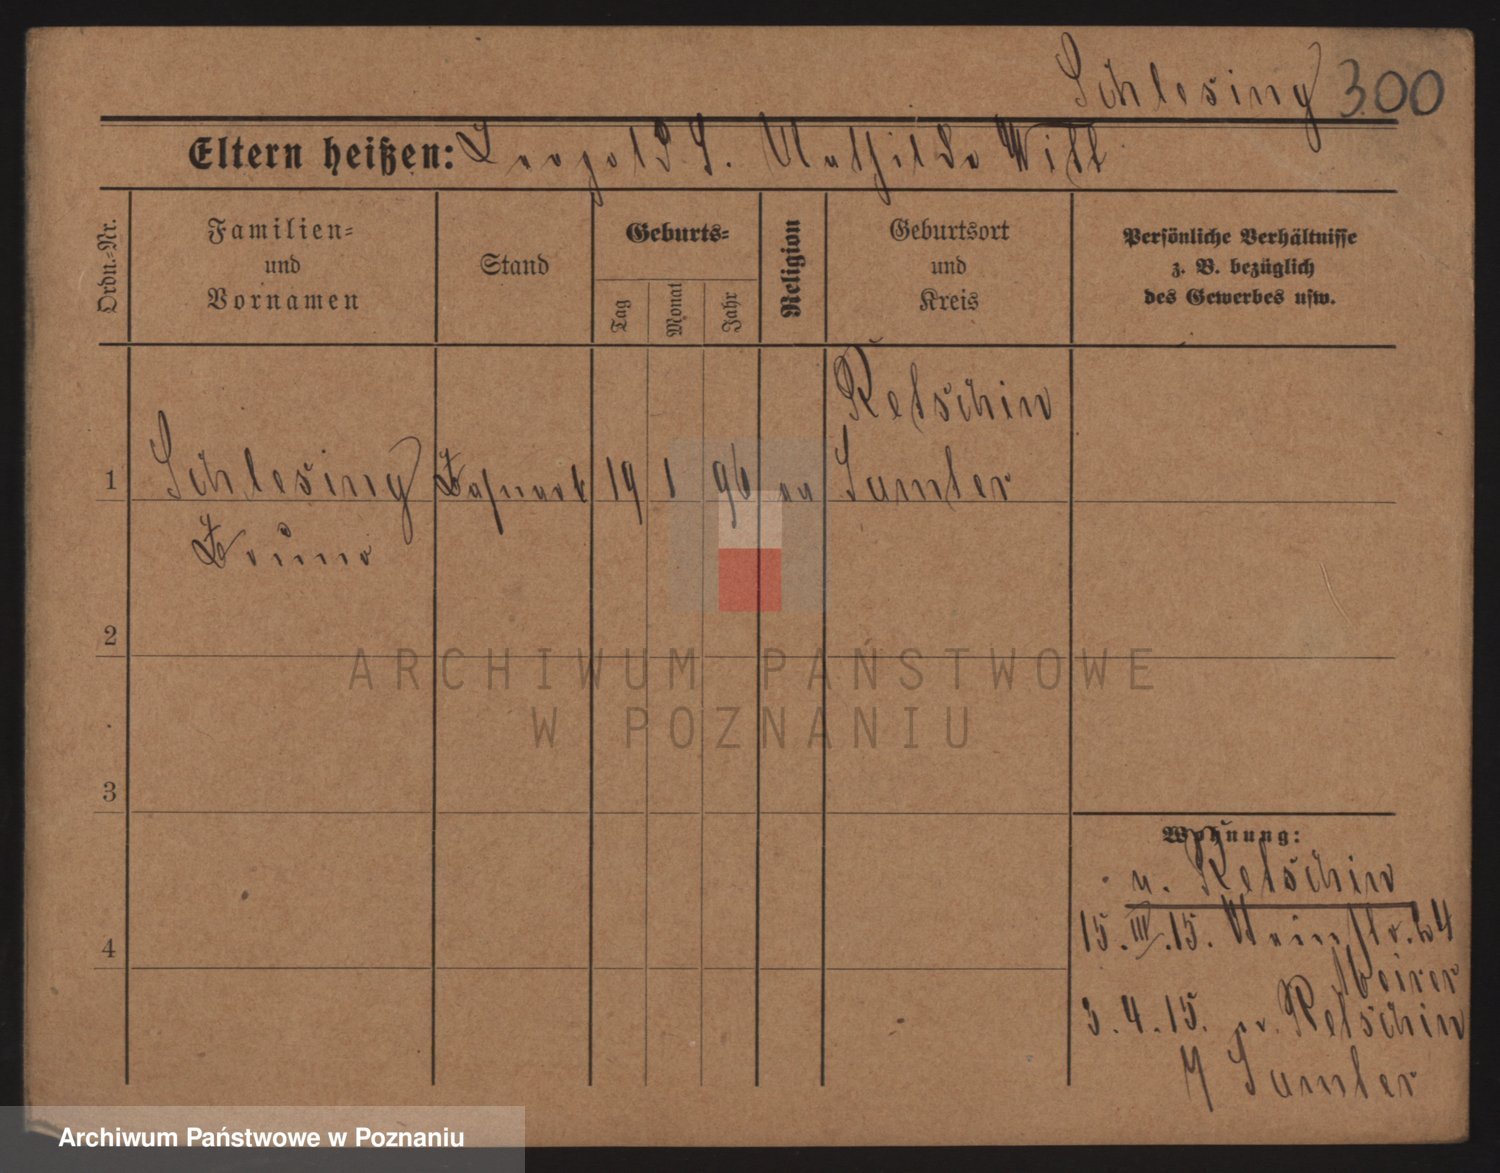 Schlesing 300
Eltern heißen: Leopold S. Mathilde Witt
Ordn.-Nr.
Familien-
und
Vornamen
Stand
Geburts-
Tag
Monat
Jahr
Religion
Geburtsort
und
Kreis
Persönliche Verhältnisse
z. B. bezüglich
des Gewerbes usw.
Retschin
1 Schlesing 19 1 96 Samter
Bruno
2
ARCHIWUM PAŃSTWOWE
W POZNANIU
3
Wohnung:
Retschin
4
15.III.15.
3.4.15. Retschin
Samter
Archiwum Państwowe w Poznaniu